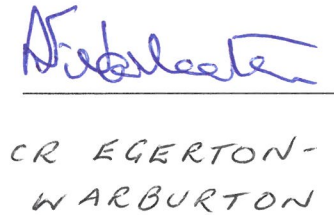 CR EGERTON-
WARBURTON